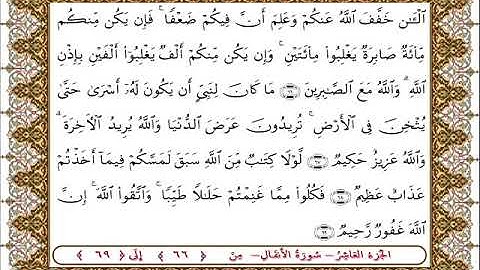 ٱلْـَٰٔنَ خَفَّفَ ٱللَّهُ عَنكُمْ وَعَلِمَ أَنَّ فِيكُمْ ضَعْفًا ۚ فَإِن يَكُن مِّنكُم
مِّا۟ئَةٌ صَابِرَةٌ يَغْلِبُوا۟ مِا۟ئَتَيْنِ ۚ وَإِن يَكُن مِّنكُمْ أَلْفٌ يَغْلِبُوٓا۟ أَلْفَيْنِ بِإِذْنِ
ٱللَّهِ ۗ وَٱللَّهُ مَعَ ٱلصَّٰبِرِينَ ٦٦ مَا كَانَ لِنَبِىٍّ أَن يَكُونَ لَهُۥٓ أَسْرَىٰ حَتَّىٰ
يُثْخِنَ فِى ٱلْأَرْضِ ۚ تُرِيدُونَ عَرَضَ ٱلدُّنْيَا وَٱللَّهُ يُرِيدُ ٱلْـَٔاخِرَةَ ۗ
وَٱللَّهُ عَزِيزٌ حَكِيمٌ ٦٧ لَّوْلَا كِتَٰبٌ مِّنَ ٱللَّهِ سَبَقَ لَمَسَّكُمْ فِيمَآ أَخَذْتُمْ
عَذَابٌ عَظِيمٌ ٦٨ فَكُلُوا۟ مِمَّا غَنِمْتُمْ حَلَٰلًا طَيِّبًا ۚ وَٱتَّقُوا۟ ٱللَّهَ ۚ إِنَّ
ٱللَّهَ غَفُورٌ رَّحِيمٌ ٦٩
الجزء العاشر - سورة الأنفال - من ﴿ ٦٦ ﴾ إلى ﴿ ٦٩ ﴾